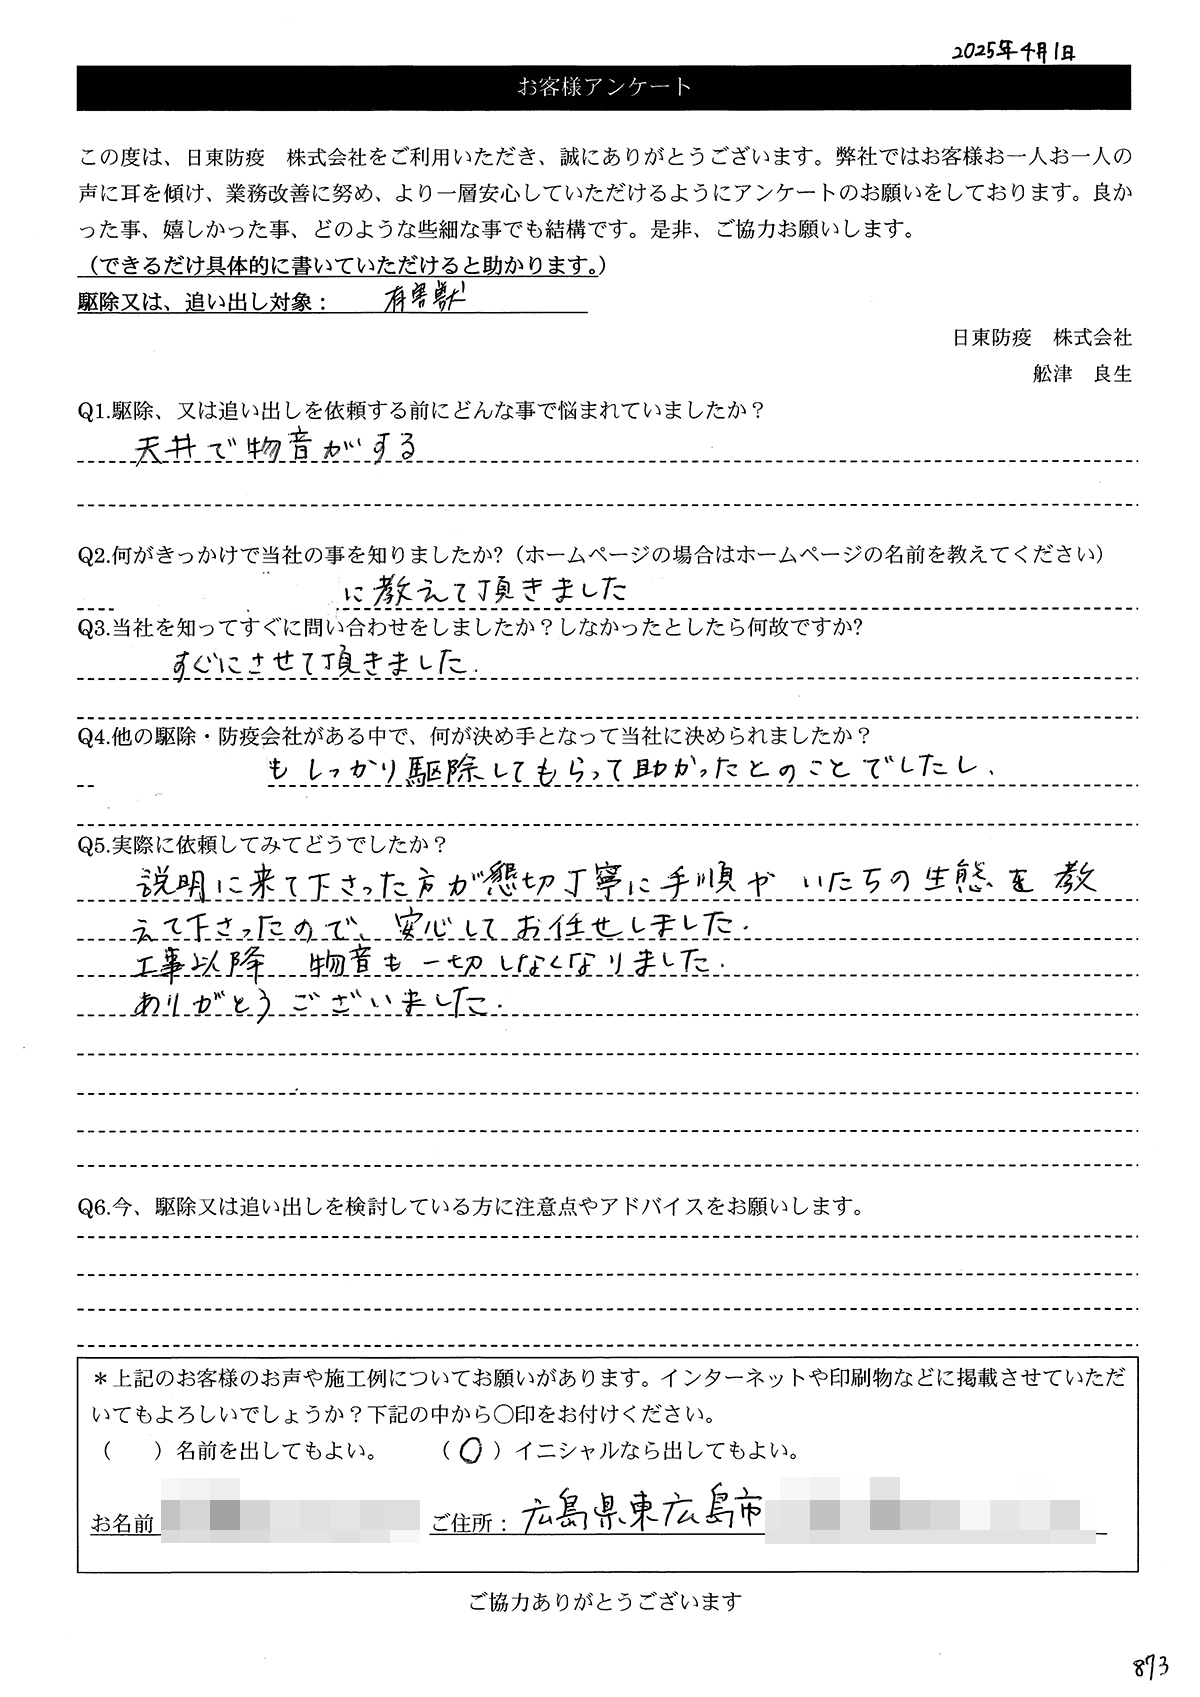 2025年4月1日
お客様アンケート
この度は、日東防疫　株式会社をご利用いただき、誠にありがとうございます。弊社ではお客様お一人お一人の
声に耳を傾け、業務改善に努め、より一層安心していただけるようにアンケートのお願いをしております。良か
った事、嬉しかった事、どのような些細な事でも結構です。是非、ご協力お願いします。
（できるだけ具体的に書いていただけると助かります。）
駆除又は、追い出し対象： 有害獣
日東防疫　株式会社
舩津　良生
Q1.駆除、又は追い出しを依頼する前にどんな事で悩まれていましたか？
天井で物音がする
Q2.何がきっかけで当社の事を知りましたか?（ホームページの場合はホームページの名前を教えてください）
に教えて頂きました
Q3.当社を知ってすぐに問い合わせをしましたか？しなかったとしたら何故ですか?
すぐにさせて頂きました.
Q4.他の駆除・防疫会社がある中で、何が決め手となって当社に決められましたか？
もしっかり駆除してもらって助かったとのことでしたし.
Q5.実際に依頼してみてどうでしたか？
説明に来て下さった方が懇切丁寧に手順や いたちの生態を教
えて下さったので、安心してお任せしました.
工事以降　物音も一切しなくなりました.
ありがとうございました.
Q6.今、駆除又は追い出しを検討している方に注意点やアドバイスをお願いします。
＊上記のお客様のお声や施工例についてお願いがあります。インターネットや印刷物などに掲載させていただ
いてもよろしいでしょうか？下記の中から〇印をお付けください。
（　　）名前を出してもよい。　　（〇）イニシャルなら出してもよい。
お名前　ご住所：広島県東広島市
ご協力ありがとうございます
873